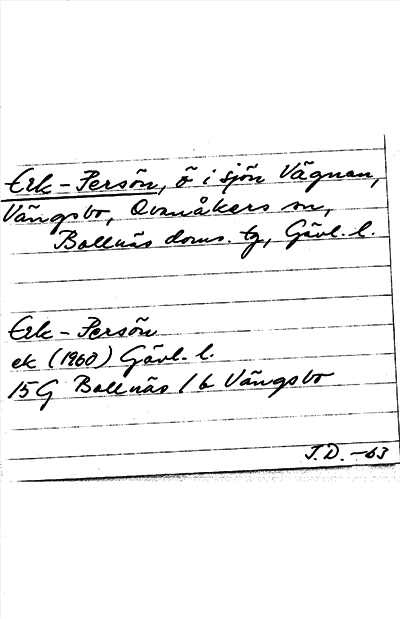 Erk-Persön, ö i sjön Vägnan,
Vängsbo, Ovanåkers sn,
Bollnäs doms. tg, Gävl. l.
Erk-Persön
ek (1960) Gävl. l.
15G Bollnäs 1b Vängsbo
J.D. -63